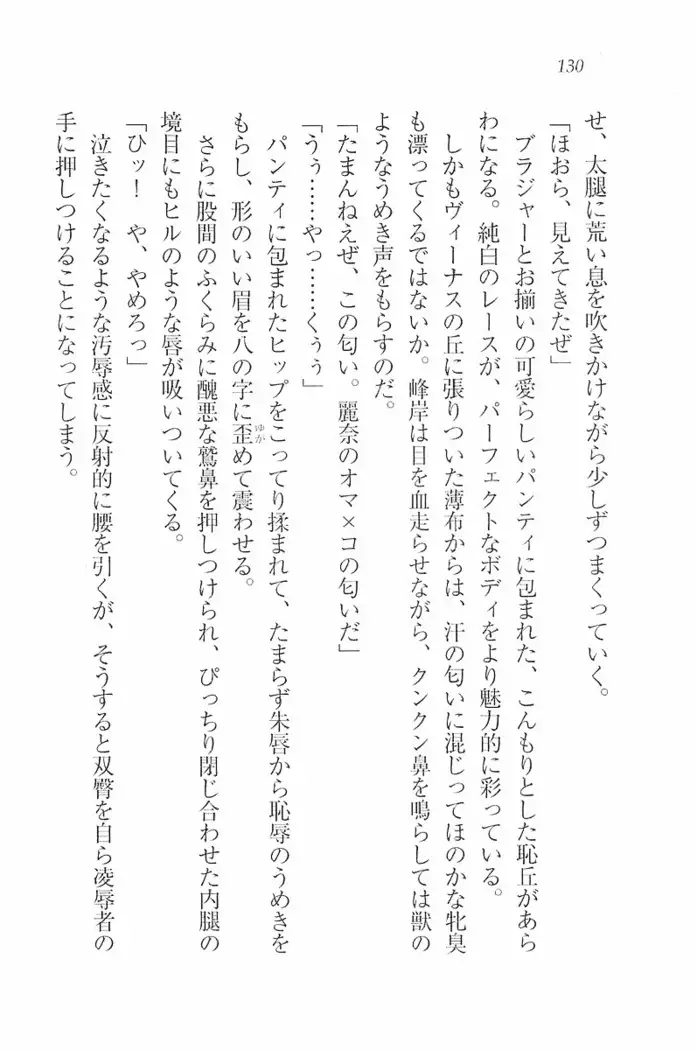 130
せ、太腿に荒い息を吹きかけながら少しずつまくっていく。
「ほおら、見えてきたぜ」
ブラジャーとお揃いの可愛らしいパンティに包まれた、こんもりとした恥丘があら
わになる。純白のレースが、パーフェクトなボディをより魅力的に彩っている。
しかもヴィーナスの丘に張りついた薄布からは、汗の匂いに混じってほのかな牝臭
も漂ってくるではないか。峰岸は目を血走らせながら、クンクン鼻を鳴らしては獣の
ようなうめき声をもらすのだ。
「たまんねえぜ、この匂い。麗奈のオマ×コの匂いだ」
「うぅ……やっ……くぅぅ」
パンティに包まれたヒップをこってり揉まれて、たまらず朱唇から恥辱のうめきを
もらし、形のいい眉を八の字に歪めて震わせる。
ゆが
さらに股間のふくらみに醜悪な鷲鼻を押しつけられ、ぴっちり閉じ合わせた内腿の
境目にもヒルのような唇が吸いついてくる。
「ひッ！　や、やめろっ」
泣きたくなるような汚辱感に反射的に腰を引くが、そうすると双臀を自ら凌辱者の
手に押しつけることになってしまう。